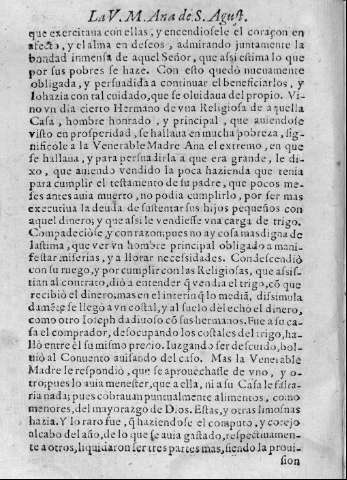 La V. M. Ana de S. Agust.
que exercitaua con ellas, y encendiosele el coraçon en
afecto, y el alma en deseos, admirando juntamente la
bondad inmensa de aquel Señor, que assi estima lo que
por sus pobres se haze. Con esto quedò nueuamente
obligada, y persuadida a continuar el beneficiarlos, y
lo hazia con tal cuidado, que se oluidaua del propio. Vi-
no vn dia cierto Hermano de vna Religiosa de aquella
Casa, hombre honrado, y principal, que auiendose
visto en prosperidad, se hallaua en mucha pobreza, sig-
nificòle a la Venerable Madre Ana el extremo, en que
se hallaua, y para persuadirla a que era grande, le di-
xo, que auiendo vendido la poca hazienda que tenia
para cumplir el testamento de su padre, que pocos me-
ses antes auia muerto, no podia cumplirlo, por ser mas
executiua la deuda de sustentar sus hijos pequeños con
aquel dinero; y que assi le vendiesse vna carga de trigo.
Compadeciòse, y con razon; pues no ay cosa mas digna de
lastima, que ver vn hombre principal obligado a mani-
festar miserias, y a llorar necesidades. Condescendiò
con su ruego, y por cumplir con las Religiosas, que assis-
tian al contrato, diò a entender q̃ vendia el trigo, cõ que
recibiò el dinero; mas en el interin q̃ lo mediã, dissimula
damẽte se llegò a vn costal, y al suelo del echo el dinero,
como otro Ioseph dadiuoso cõ sus hermanos. Fue a su ca-
sa el comprador, desocupando los costales del trigo, ha-
llò entre èl su mismo precio. Iuzgando ser descuido, bol-
uiò al Conuento auisando del caso. Mas la Venerable
Madre le respondiò, que se aprouechasse de vno, y o-
tro; pues lo auia menester, que a ella, ni a su Casa le falta-
ria nada; pues cobrauan puntualmente alimentos, como
menores, del mayorazgo de Dios. Estas, y otras limosnas
hazia. Y lo raro fue, q̃ haziendose el computo, y cotejo
al cabo del año, de lo que se auia gastado, respectiuamen-
te a otros, liquidaron ser tres partes mas, siendo la proui-
sion